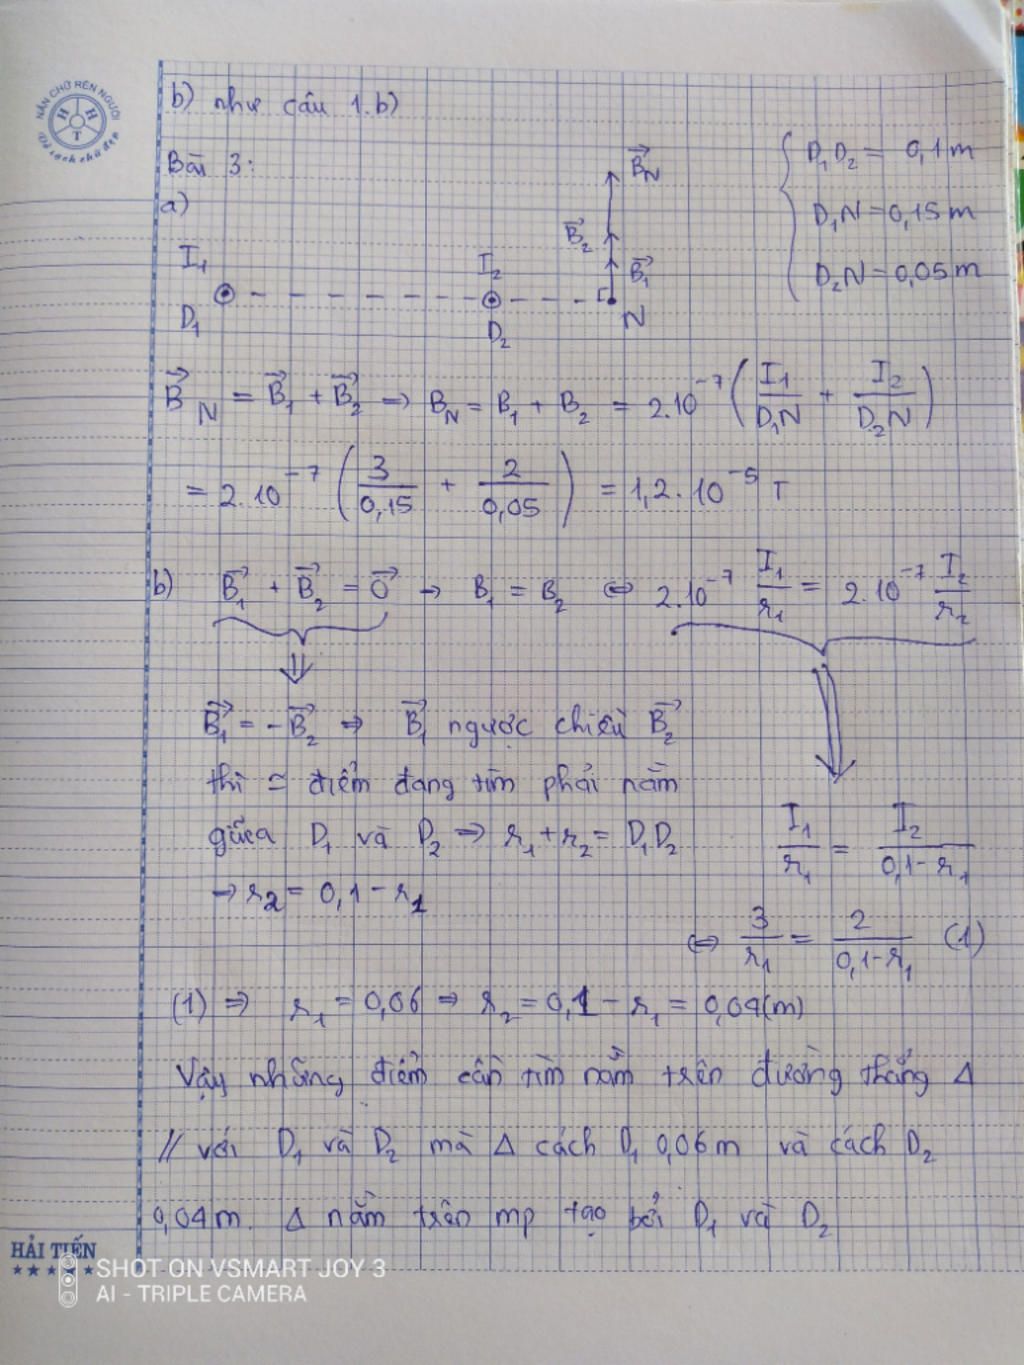 NẮN CHỮ RÈN NGƯỜI
H H T
Vở sạch chữ đẹp
b) như câu 1.b)
Bài 3:
a)
D₁D₂ = 0,1 m
D₁N = 0,15 m
D₂N = 0,05 m
B⃗_N
B⃗₂
B⃗₁
I₁ I₂
D₁ D₂ N
B⃗_N = B⃗₁ + B⃗₂ → B_N = B₁ + B₂ = 2.10⁻⁷ (I₁/D₁N + I₂/D₂N)
= 2.10⁻⁷ (3/0,15 + 2/0,05) = 1,2.10⁻⁵ T
b) B⃗₁ + B⃗₂ = 0⃗ → B₁ = B₂ ⇔ 2.10⁻⁷ I₁/r₁ = 2.10⁻⁷ I₂/r₂
B⃗₁ = -B⃗₂ ⇒ B⃗₁ ngược chiều B⃗₂
thì = điểm đang tìm phải nằm
giữa D₁ và D₂ ⇒ r₁ + r₂ = D₁D₂
→ r₂ = 0,1 - r₁
I₁/r₁ = I₂/(0,1 - r₁)
⇔ 3/r₁ = 2/(0,1 - r₁) (1)
(1) ⇒ r₁ = 0,06 ⇒ r₂ = 0,1 - r₁ = 0,04(m)
Vậy những điểm cần tìm nằm trên đường thẳng Δ
// với D₁ và D₂ mà Δ cách D₁ 0,06m và cách D₂
0,04m. Δ nằm trên mp tạo bởi D₁ và D₂
HẢI TIẾN
SHOT ON VSMART JOY 3
AI - TRIPLE CAMERA